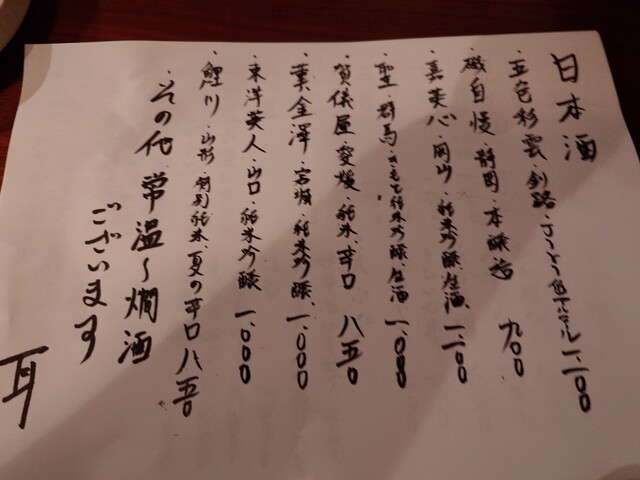 日本酒
・五色彩雲・釧路・さっとう低アルコール 一、一〇〇
・磯自慢・静岡・本醸造 九〇〇
・嘉美心・岡山・純米吟醸・生酒 一、一〇〇
・聖・群馬・きもと純米吟醸・生酒 一、〇〇〇
・賀儀屋・愛媛・純米・辛口 八五〇
・黄金澤・宮城・純米吟醸、一、〇〇〇
・東洋美人・山口・純米吟醸 一、〇〇〇
・鯉川・山形・特別純米・夏の辛口 八五〇
・その他 常温〜燗酒
ございます
耳